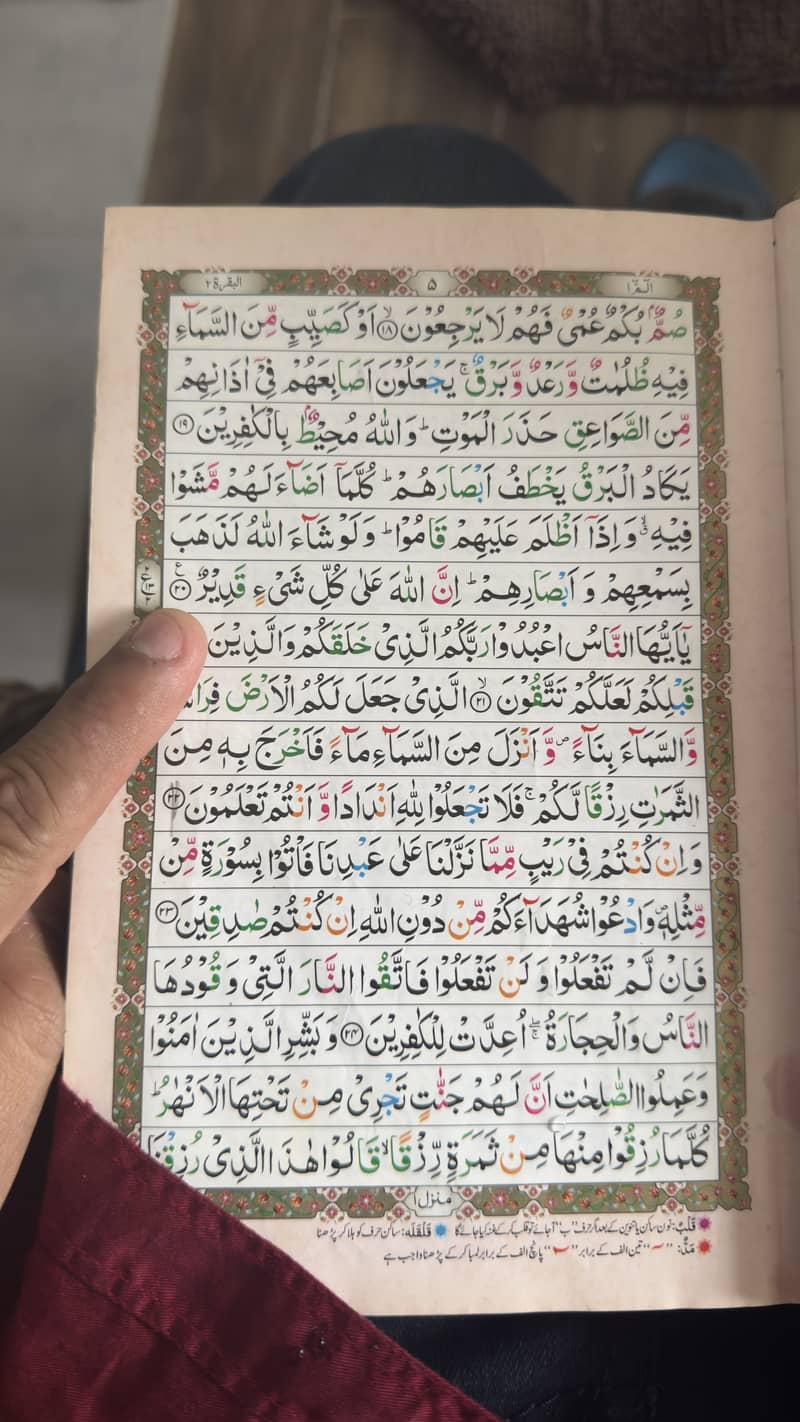 الٓمّٓ ۱
۵
البقرة ۲
صُمٌّۢ بُكْمٌ عُمْیٌ فَهُمْ لَا یَرْجِعُوْنَۙ‏﴿۱۸﴾ اَوْ كَصَیِّبٍ مِّنَ السَّمَآءِ
فِیْهِ ظُلُمٰتٌ وَّرَعْدٌ وَّبَرْقٌ ۚ یَجْعَلُوْنَ اَصَابِعَهُمْ فِیْۤ اٰذَانِهِمْ
مِّنَ الصَّوَاعِقِ حَذَرَ الْمَوْتِ ؕ وَاللّٰهُ مُحِیْطٌۢ بِالْكٰفِرِیْنَ ﴿۱۹﴾
یَكَادُ الْبَرْقُ یَخْطَفُ اَبْصَارَهُمْ ؕ كُلَّمَاۤ اَضَآءَ لَهُمْ مَّشَوْا
فِیْهِ ۙۗ وَ اِذَاۤ اَظْلَمَ عَلَیْهِمْ قَامُوْا ؕ وَ لَوْ شَآءَ اللّٰهُ لَذَهَبَ
بِسَمْعِهِمْ وَ اَبْصَارِهِمْ ؕ اِنَّ اللّٰهَ عَلٰی كُلِّ شَیْءٍ قَدِیْرٌ ﴿۲۰﴾ ع
یٰۤاَیُّهَا النَّاسُ اعْبُدُوْا رَبَّكُمُ الَّذِیْ خَلَقَكُمْ وَالَّذِیْنَ
قَبْلِكُمْ لَعَلَّكُمْ تَتَّقُوْنَ ۙ‏﴿۲۱﴾ الَّذِیْ جَعَلَ لَكُمُ الْاَرْضَ
وَّالسَّمَآءَ بِنَآءً ۪ وَّ اَنْزَلَ مِنَ السَّمَآءِ مَآءً فَاَخْرَجَ بِهٖ مِنَ
الثَّمَرٰتِ رِزْقًا لَّكُمْ ۚ فَلَا تَجْعَلُوْا لِلّٰهِ اَنْدَادًا وَّ اَنْتُمْ تَعْلَمُوْنَ ﴿۲۲﴾
وَ اِنْ كُنْتُمْ فِیْ رَیْبٍ مِّمَّا نَزَّلْنَا عَلٰی عَبْدِنَا فَاْتُوْا بِسُوْرَةٍ مِّنْ
مِّثْلِهٖ ۪ وَادْعُوْا شُهَدَآءَكُمْ مِّنْ دُوْنِ اللّٰهِ اِنْ كُنْتُمْ صٰدِقِیْنَ ﴿۲۳﴾
فَاِنْ لَّمْ تَفْعَلُوْا وَ لَنْ تَفْعَلُوْا فَاتَّقُوا النَّارَ الَّتِیْ وَ قُوْدُهَا
النَّاسُ وَالْحِجَارَةُ ۖۚ اُعِدَّتْ لِلْكٰفِرِیْنَ ﴿۲۴﴾ وَ بَشِّرِ الَّذِیْنَ اٰمَنُوْا
وَ عَمِلُوا الصّٰلِحٰتِ اَنَّ لَهُمْ جَنّٰتٍ تَجْرِیْ مِنْ تَحْتِهَا الْاَنْهٰرُ ؕ
كُلَّمَا رُزِقُوْا مِنْهَا مِنْ ثَمَرَةٍ رِّزْقًا ۙ قَالُوْا هٰذَا الَّذِیْ رُزِقْنَا
منزل ۱
قَلْبْ: نون ساکن یا تنوین کے بعد اگر حرف "ب" آجائے تو قلب کر کے غنہ کیا جائے گا قَلْقَلَه: ساکن حرف کو ہلا کر پڑھنا
مَدّْ: "~" تین الف کے برابر "~" پانچ الف کے برابر لمبا کر کے پڑھنا واجب ہے